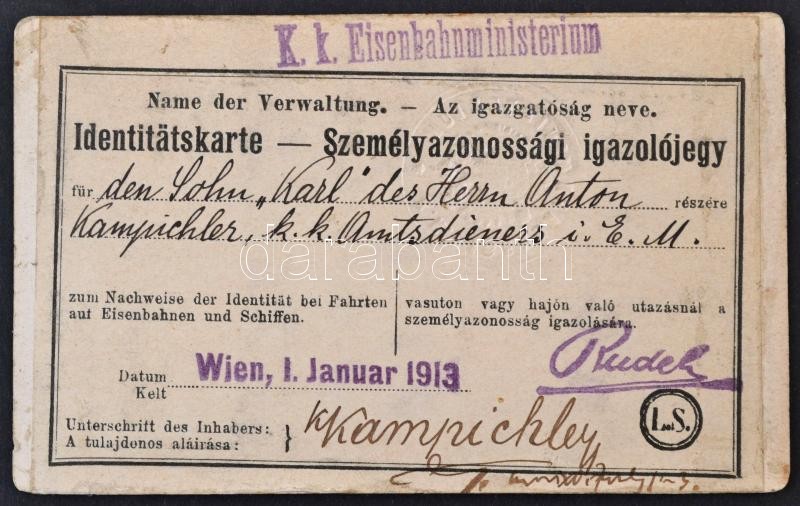 K. k. Eisenbahnministerium
Name der Verwaltung. — Az igazgatóság neve.
Identitätskarte — Személyazonossági igazolójegy
für den Sohn „Karl" des Herrn Anton részére
Kampichler, k. k. Amtsdieners i. E. M.
darabanth
zum Nachweise der Identität bei Fahrten
auf Eisenbahnen und Schiffen.
vasuton vagy hajón való utazásnál a
személyazonosság igazolására.
Datum Wien, 1. Januar 1913
Kelt
Rudek
Unterschrift des Inhabers:
A tulajdonos aláirása:
} K Kampichler
L.S.